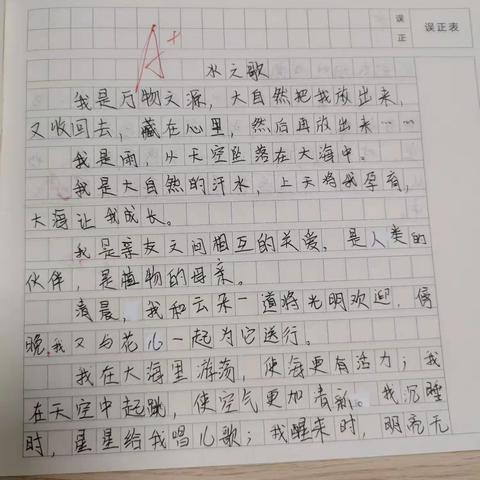 误
正
误正表
A+
水之歌
我是万物之源，大自然把我放出来，
又收回去，藏在心里，然后再放出来……
我是雨，从天空坠落在大海中。
我是大自然的汗水，上天将我孕育，
大海让我成长。
我是亲友之间相互的关爱，是人类的
伙伴，是植物的母亲。
清晨，我和云朵一道将光明欢迎，傍
晚，我又与花儿一起为它送行。
我在大海里游荡，使海更有活力；我
在天空中起跳，使空气更加清新。我沉睡
时，星星给我唱儿歌；我醒来时，明亮无